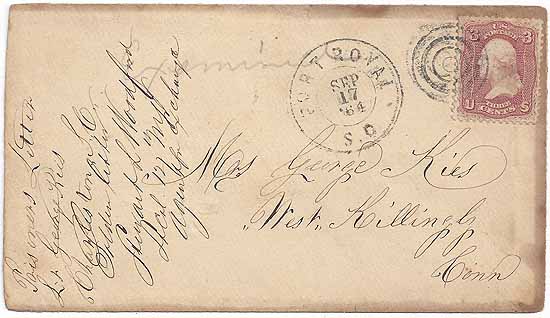 Prisoners Letter
Lt George Kies
Charleston S.C.
Stewart L Woodford
Agent for exchange
PORT ROYAL
SEP
17
'64
S.C.
U.S. POSTAGE
3
3
U
THREE CENTS
S
Mrs George Kies
"West" Killingly
Conn